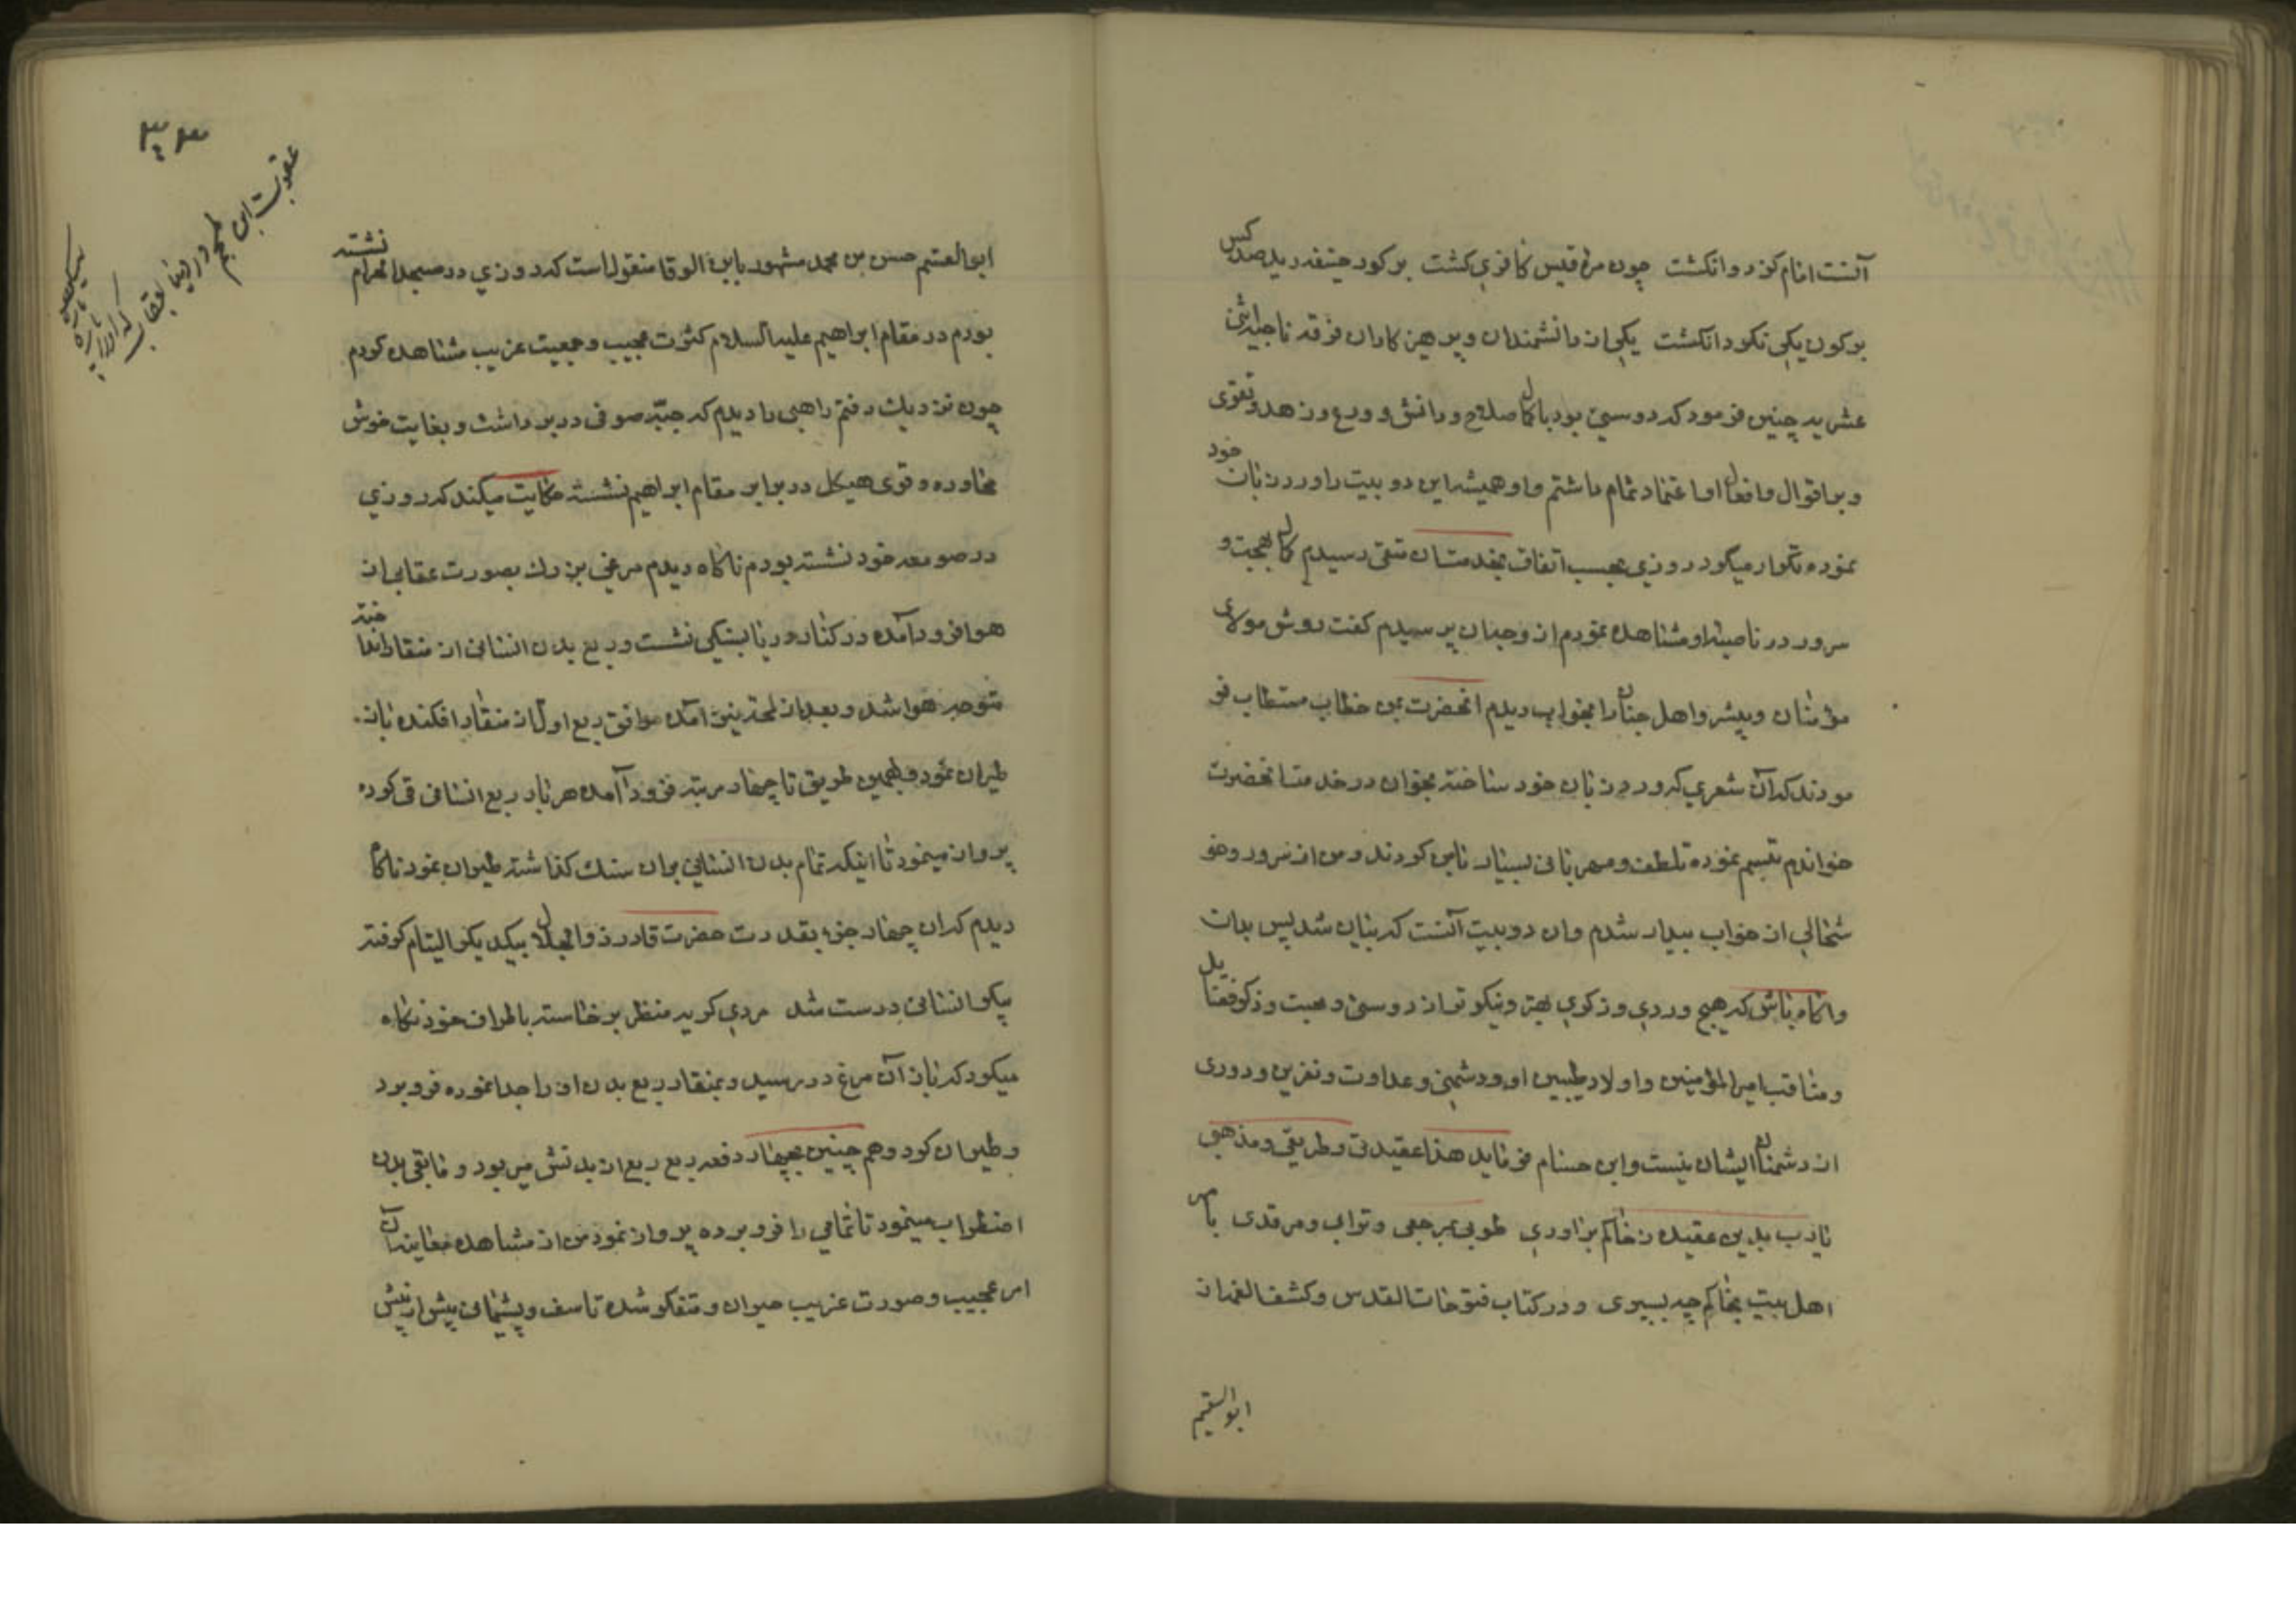 آنست امام کز دو انکشت چون مرة قیس کافری کشت برکورد جیفه دید صد کس
برکون یکی نکرد انکشت یکی از دانشمندان و پرهیزکاران فرقه ناجیه اثنی
عشریه چنین فرمود که دوستی بود با کمال صلاح و دانش و ورع و زهد و تقوی
و بر اقوال و افعال او اعتماد تمام داشتم و او همیشه این دو بیت را ورد زبان خود
نموده تکرار میکرد روزی بحسب اتفاق بخدمت آن متقی رسیدم کمال بهجت و
سرور در ناصیه او مشاهده نمودم از وجه آن پرسیدم کفت دوش مولای
مؤمنان و پیشرو اهل جنان را بخواب دیدم انحضرت بمن خطاب مستطاب فر
مودند که آن شعری که ورد زبان خود ساخته بخوان در خدمت انحضرت
خواندم تبسم نموده تلطف و مهربانی بسیار بامن کردند و من از سرور و خو
شحالی از خواب بیدار شدم و ان دو بیت آنست که بیان شد پس بدان
و اکاه باش که هیچ وردی و ذکری بهتر و نیکوتر از دوستی و محبت و ذکر فضایل
و مناقب امیر المؤمنین و اولاد طیبین او و دشمنی و عداوت و نفرین و دوری
از دشمنان ایشان نیست و ابن حسام فرماید هذا عقیدتی و طریقی و مذهبی
یارب بدین عقیده ز خاکم براوری طوبی بمرجعی و ترابی و مرقدی با مهر
اهل بیت بخاکم چه بسپری و در کتاب فتوحات القدس و کشف الغمه از
ابو القسیم
۳۳۴
عقوبت ابن ملجم در دنیا بعقاب
که او را پاره
پاره میکند
ابو القسیم حسن بن محمد مشهور بابن الوقا منقول است که در روزی در مسجد الحرام نشسته
بودم در مقام ابراهیم علیه السلام کثرت عجیب و جمعیت غریب مشاهده کردم
چون نزدیک رفتم راهبی را دیدم که جبه صوفی در بر داشت و بغایت خوش
محاوره و قوی هیکل در برابر مقام ابراهیم نشسته حکایت میکند که روزی
در صومعه خود نشسته بودم ناکاه دیدم مرغی بزرك بصورت عقابی از
هوا فرود آمده در کنار دریا بسنکی نشست و ربع بدن انسانی از منقار انداخته
متوجه هوا شد و بعد از لحظه نیز آمده موافق ربع اول از منقار افکنده باز
طیران نمود و بهمین طریق تا چهار مرتبه فرود آمده هر بار ربع انسانی قی کرده
پرواز مینمود تا اینکه تمام بدن انسانی بران سنك کذاشته طیران نمود ناکاه
دیدم که ان چهار جزء بقدرت حضرت قادر ذو الجلال بیکدیکر التیام کرفته
پیکر انسانی درست شد مردی کریه منظر برخاسته باطراف خود نکاه
میکرد که باز آن مرغ در رسید و بمنقار ربع بدن او را جدا نموده فرو برد
و طیران کرد و هم چنین بچهار دفعه ربع ربع از بدنش می ربود و مابقی بدن
اضطراب مینمود تا تمامی را فرو برده پرواز نمود من از مشاهده معاینه آن
امر عجیب و صورت غریب حیران و متفکر شده تاسف و پشیمانی بیش از پیش